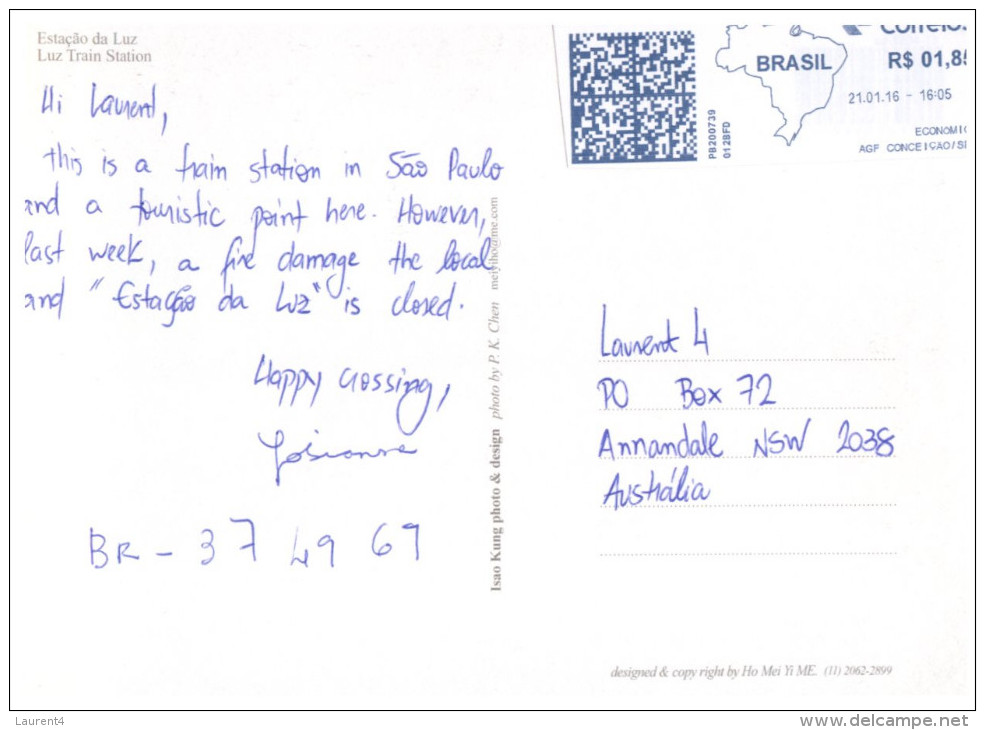 Estação da Luz
Luz Train Station
Hi Laurent,
this is a train station in São Paulo
and a touristic point here. However,
last week, a fire damage the local
and "Estação da Luz" is closed.
Happy crossing,
Josianne
BR - 37 49 69
Correios
BRASIL
R$ 01,85
21.01.16 - 16:05
PB200739
012BFD
ECONOMIC
AGF CONCEIÇAO/S
Laurent 4
PO Box 72
Annandale NSW 2038
Austrália
Isao Kung photo & design photo by P. K. Chen meiyiho@me.com
designed & copy right by Ho Mei Yi ME. (11) 2062-2899
Laurent4
www.delcampe.net